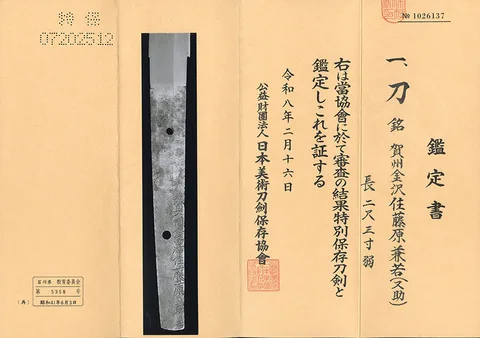 № 1026137
鑑定書
一、刀 銘 賀州金沢住藤原兼若(又助)
長 二尺三寸弱
右は當協會に於て審査の結果特別保存刀剣と
鑑定しこれを証する
令和八年二月十六日
公益財團法人 日本美術刀剣保存協會
特保
07202512
教育委員会
第 5358 号
昭和41年6月3日
(再)